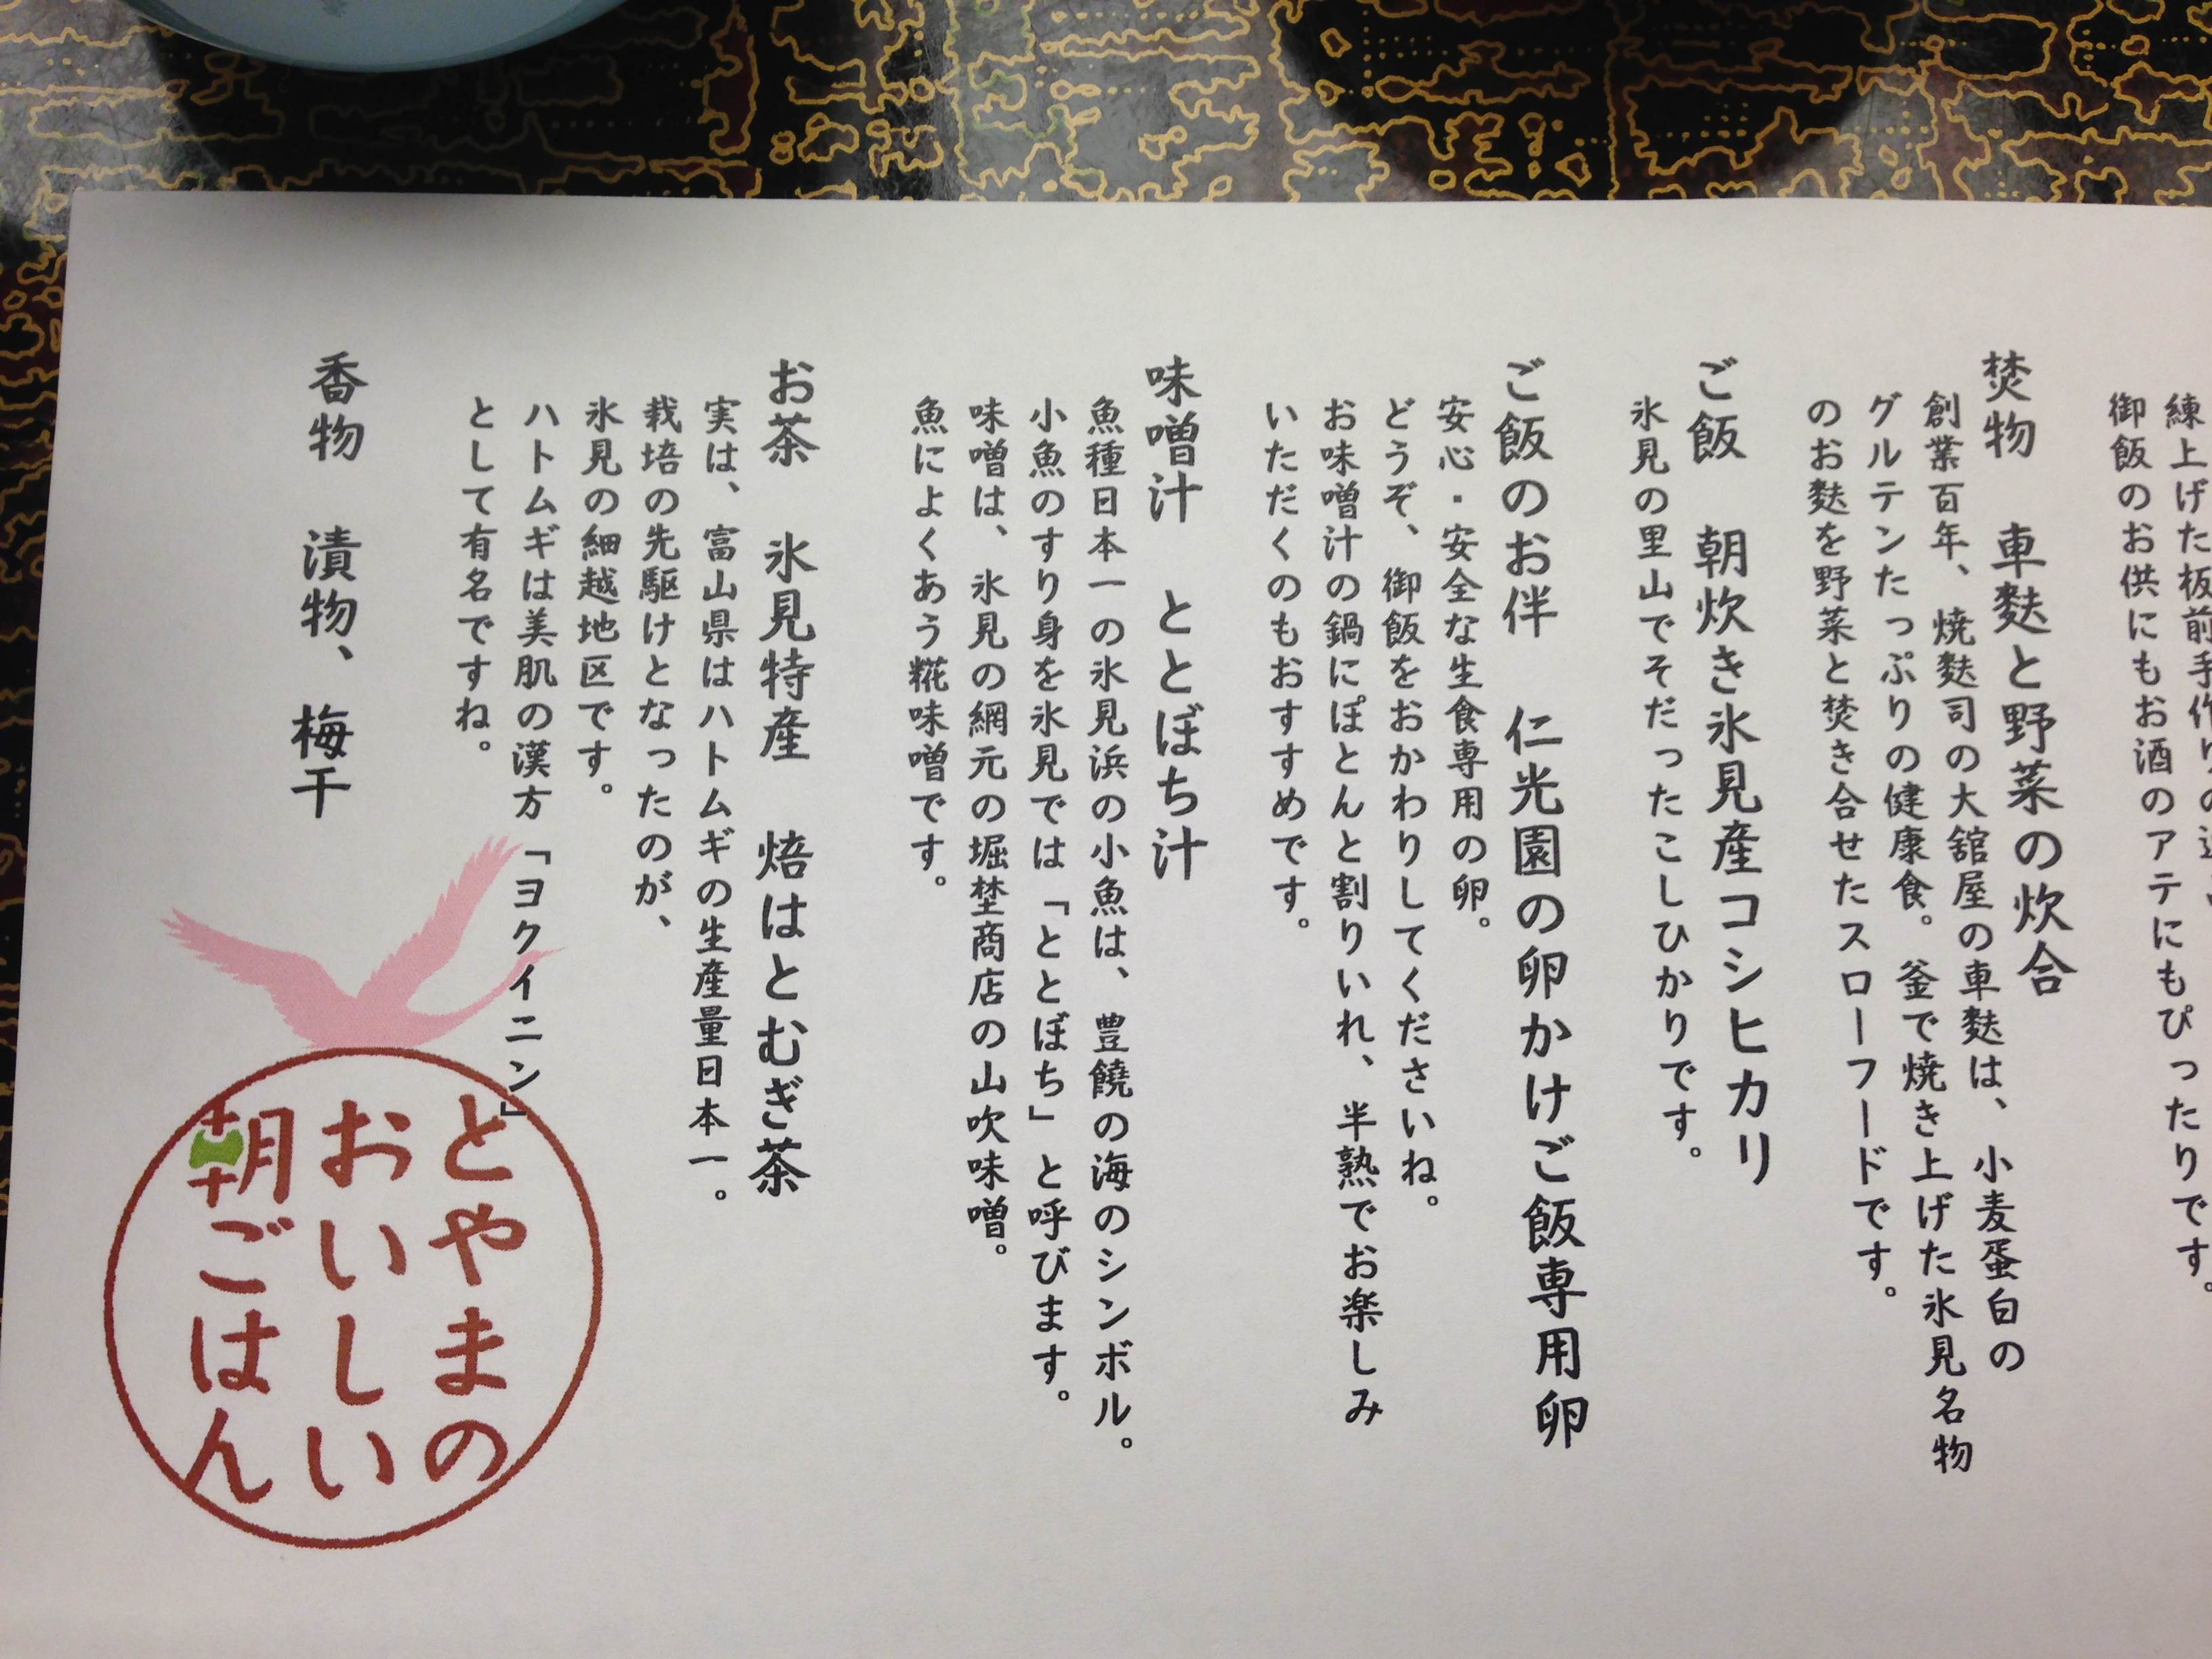 練上げた板前手作りの
御飯のお供にもお酒のアテにもぴったりです。
焚物　車麩と野菜の炊合
創業百年、焼麩司の大舘屋の車麩は、小麦蛋白の
グルテンたっぷりの健康食。釜で焼き上げた氷見名物
のお麩を野菜と焚き合せたスローフードです。
ご飯　朝炊き氷見産コシヒカリ
氷見の里山でそだったこしひかりです。
ご飯のお伴　仁光園の卵かけご飯専用卵
安心・安全な生食専用の卵。
どうぞ、御飯をおかわりしてくださいね。
お味噌汁の鍋にぽとんと割りいれ、半熟でお楽しみ
いただくのもおすすめです。
味噌汁　ととぼち汁
魚種日本一の氷見浜の小魚は、豊饒の海のシンボル。
小魚のすり身を氷見では「ととぼち」と呼びます。
味噌は、氷見の網元の堀埜商店の山吹味噌。
魚によくあう糀味噌です。
お茶　氷見特産　焙はとむぎ茶
実は、富山県はハトムギの生産量日本一。
栽培の先駆けとなったのが、
氷見の細越地区です。
ハトムギは美肌の漢方「ヨクイニン」
として有名ですね。
香物　漬物、梅干
とやまの
おいしい
朝ごはん